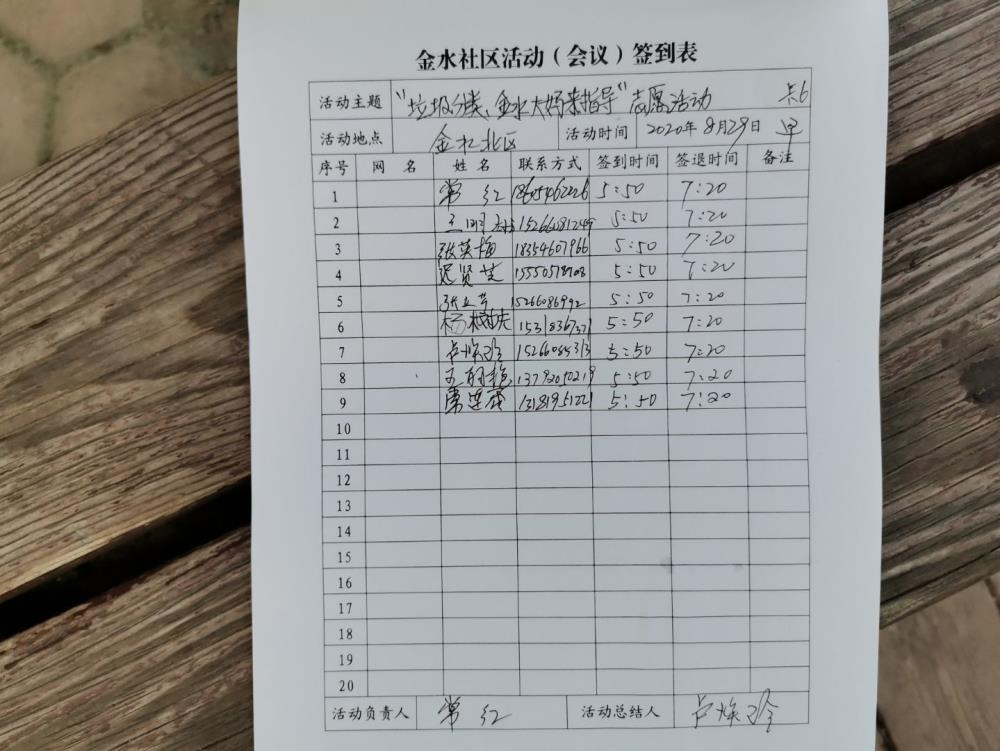 金水社区活动（会议）签到表
活动主题 “垃圾分类、金水大妈来指导”志愿活动
活动地点 金水北区 活动时间 2020年8月29日 早
序号 网名 姓名 联系方式 签到时间 签退时间 备注
1 常红 18605462226 5:50 7:20
2 15266081249 5:50 7:20
3 张英梅 18354607966 5:50 7:20
4 迟贤芝 5:50 7:20
5 15266086992 5:50 7:20
6 5:50 7:20
7 卢焕玲 15266084313 5:50 7:20
8 13792050219 5:50 7:20
9 13181951221 5:50 7:20
10
11
12
13
14
15
16
17
18
19
20
活动负责人 常红 活动总结人 卢焕玲